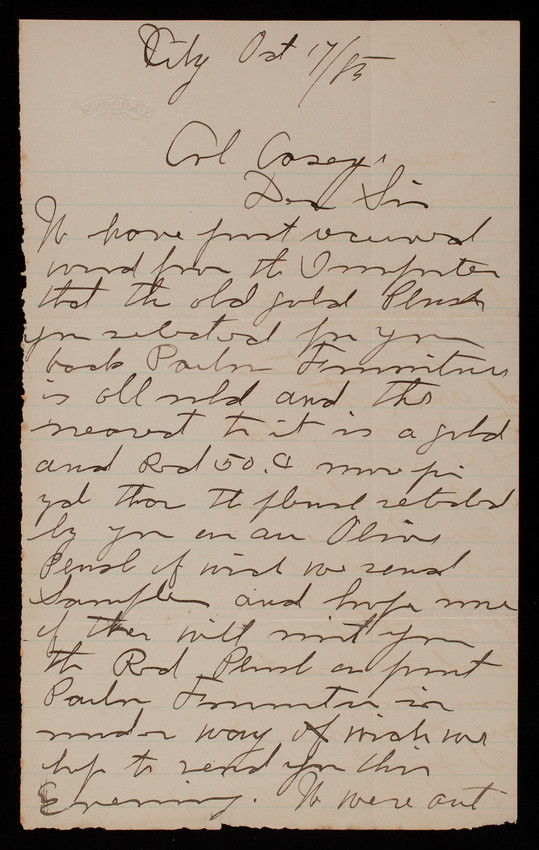 City Oct 17/85
Col Casey
Dear Sir
We have just received
word from the Importer
that the old gold Plush
you selected for your
back Parlor Furniture
is all sold and the
nearest to it is a gold
and Red 50.c more per
yd than the plush selected
by you or an Olive
Plush of wich we send
Samples and hope one
of them will suit you
the Red Plush on front
Parlor Furniture is
under way of wich we
hope to send you this
Evening. We were out